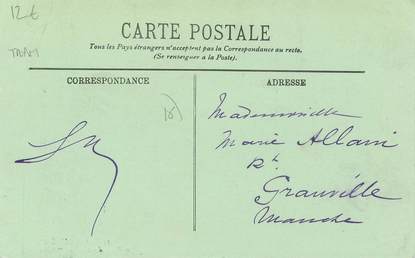 12€
TRAM
CARTE POSTALE
Tous les Pays étrangers n'acceptent pas la Correspondance au recto.
(Se renseigner à la Poste).
CORRESPONDANCE
ADRESSE
Mademoiselle
Marie Allain
Granville
Manche